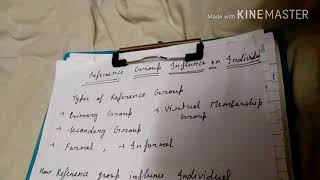 Made with KINEMASTER
Reference Group Influnce on Individual
Types of Reference Group
→ Primary Group → Virtual Membership Group
→ Secondary Group
→ Formal, → Informal
How Reference group influnce Individual